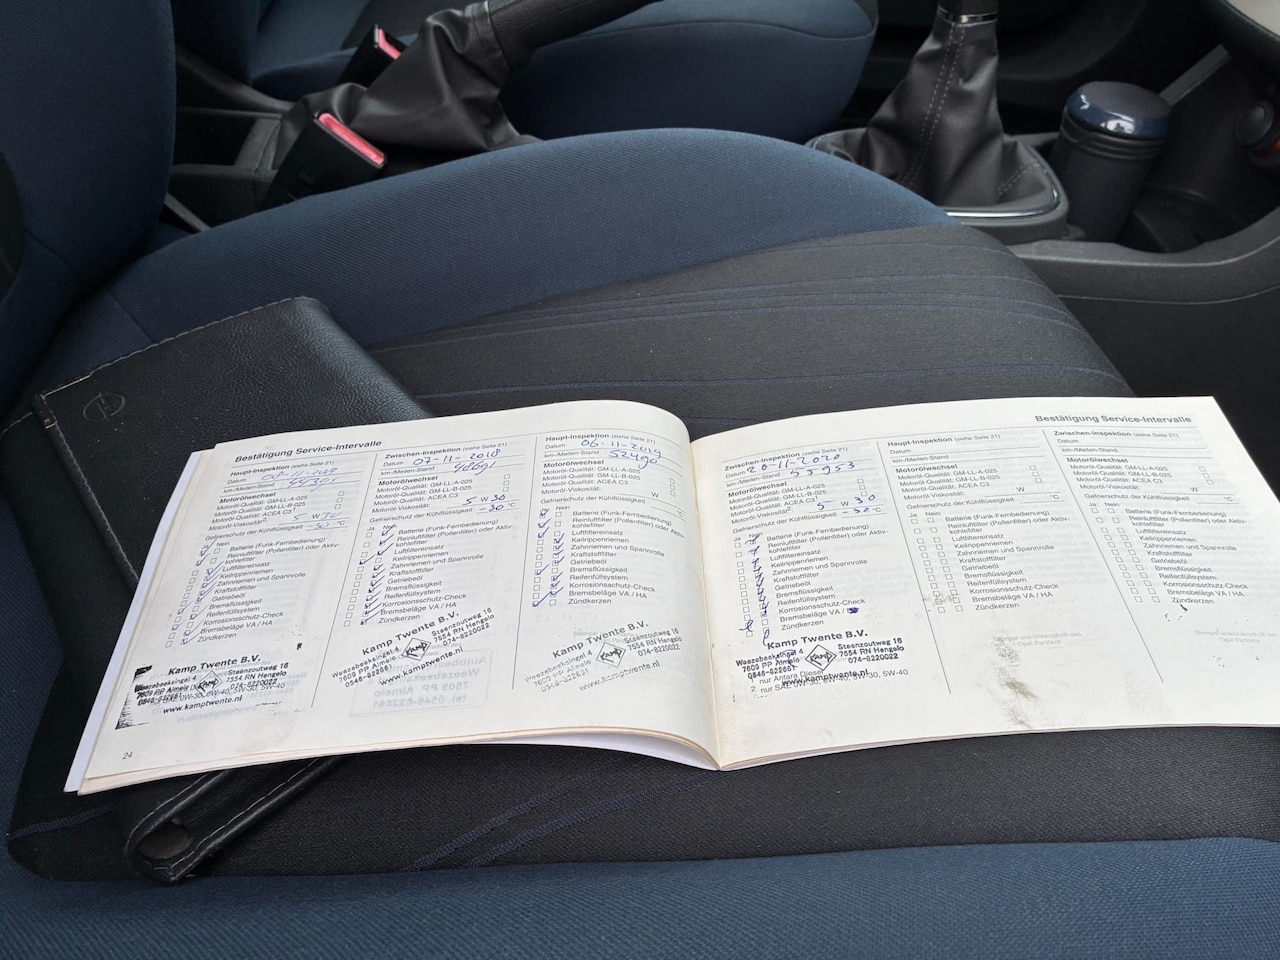 Bestätigung Service-Intervalle
Haupt-Inspektion (siehe Seite 21)
Datum
km-/Meilen-Stand 44301
Motorölwechsel
Motoröl-Qualität: GM-LL-A-025
Motoröl-Qualität: GM-LL-B-025
Motoröl-Qualität: ACEA C3
Motoröl-Viskosität: W
Gefrierschutz der Kühlflüssigkeit -30 °C
Ja Nein
Batterie (Funk-Fernbedienung)
Reinluftfilter (Pollenfilter) oder Aktiv-
kohlefilter
Luftfiltereinsatz
Keilrippenriemen
Zahnriemen und Spannrolle
Kraftstofffilter
Getriebeöl
Bremsflüssigkeit
Reifenfüllsystem
Korrosionsschutz-Check
Bremsbeläge VA / HA
Zündkerzen
Kamp Twente B.V.
Weezebeeksingel 4 Steenzoutweg 16
7609 PP Almelo KAMP 7554 RN Hengelo
0546-822661 074-8220022
www.kamptwente.nl
24
Zwischen-Inspektion (siehe Seite 21)
Datum 07-11-2018
km-/Meilen-Stand 48691
Motorölwechsel
Motoröl-Qualität: GM-LL-A-025
Motoröl-Qualität: GM-LL-B-025
Motoröl-Qualität: ACEA C3
Motoröl-Viskosität: 5 W 30
Gefrierschutz der Kühlflüssigkeit -30 °C
Ja Nein
Batterie (Funk-Fernbedienung)
Reinluftfilter (Pollenfilter) oder Aktiv-
kohlefilter
Luftfiltereinsatz
Keilrippenriemen
Zahnriemen und Spannrolle
Kraftstofffilter
Getriebeöl
Bremsflüssigkeit
Reifenfüllsystem
Korrosionsschutz-Check
Bremsbeläge VA / HA
Zündkerzen
Kamp Twente B.V.
Weezebeeksingel 4 Steenzoutweg 16
7609 PP Almelo KAMP 7554 RN Hengelo
0546-822661 074-8220022
www.kamptwente.nl
Haupt-Inspektion (siehe Seite 21)
Datum 06-11-2019
km-/Meilen-Stand 52490
Motorölwechsel
Motoröl-Qualität: GM-LL-A-025
Motoröl-Qualität: GM-LL-B-025
Motoröl-Qualität: ACEA C3
Motoröl-Viskosität: W
Gefrierschutz der Kühlflüssigkeit °C
Ja Nein
Batterie (Funk-Fernbedienung)
Reinluftfilter (Pollenfilter) oder Aktiv-
kohlefilter
Luftfiltereinsatz
Keilrippenriemen
Zahnriemen und Spannrolle
Kraftstofffilter
Getriebeöl
Bremsflüssigkeit
Reifenfüllsystem
Korrosionsschutz-Check
Bremsbeläge VA / HA
Zündkerzen
Kamp Twente B.V.
Weezebeeksingel 4 Steenzoutweg 16
7609 PP Almelo KAMP 7554 RN Hengelo
0546-822661 074-8220022
www.kamptwente.nl
Bestätigung Service-Intervalle
Zwischen-Inspektion (siehe Seite 21)
Datum 20-11-2020
km-/Meilen-Stand 55953
Motorölwechsel
Motoröl-Qualität: GM-LL-A-025
Motoröl-Qualität: GM-LL-B-025
Motoröl-Qualität: ACEA C3
Motoröl-Viskosität: 5 W 30
Gefrierschutz der Kühlflüssigkeit -30 °C
Ja Nein
Batterie (Funk-Fernbedienung)
Reinluftfilter (Pollenfilter) oder Aktiv-
kohlefilter
Luftfiltereinsatz
Keilrippenriemen
Zahnriemen und Spannrolle
Kraftstofffilter
Getriebeöl
Bremsflüssigkeit
Reifenfüllsystem
Korrosionsschutz-Check
Bremsbeläge VA / HA
Zündkerzen
Kamp Twente B.V.
Weezebeeksingel 4 Steenzoutweg 16
7609 PP Almelo KAMP 7554 RN Hengelo
0546-822661 074-8220022
1 nur Antara Diesel
www.kamptwente.nl
2 nur SAE 0W-30, 0W-40, 5W-30, 5W-40
Haupt-Inspektion (siehe Seite 21)
Datum
km-/Meilen-Stand
Motorölwechsel
Motoröl-Qualität: GM-LL-A-025
Motoröl-Qualität: GM-LL-B-025
Motoröl-Qualität: ACEA C3
Motoröl-Viskosität: W
Gefrierschutz der Kühlflüssigkeit °C
Ja Nein
Batterie (Funk-Fernbedienung)
Reinluftfilter (Pollenfilter) oder Aktiv-
kohlefilter
Luftfiltereinsatz
Keilrippenriemen
Zahnriemen und Spannrolle
Kraftstofffilter
Getriebeöl
Bremsflüssigkeit
Reifenfüllsystem
Korrosionsschutz-Check
Bremsbeläge VA / HA
Zündkerzen
Stempel und Unterschrift des
Opel Partners
Zwischen-Inspektion (siehe Seite 21)
Datum
km-/Meilen-Stand
Motorölwechsel
Motoröl-Qualität: GM-LL-A-025
Motoröl-Qualität: GM-LL-B-025
Motoröl-Qualität: ACEA C3
Motoröl-Viskosität: W
Gefrierschutz der Kühlflüssigkeit °C
Ja Nein
Batterie (Funk-Fernbedienung)
Reinluftfilter (Pollenfilter) oder Aktiv-
kohlefilter
Luftfiltereinsatz
Keilrippenriemen
Zahnriemen und Spannrolle
Kraftstofffilter
Getriebeöl
Bremsflüssigkeit
Reifenfüllsystem
Korrosionsschutz-Check
Bremsbeläge VA / HA
Zündkerzen
Stempel und Unterschrift des
Opel Partners